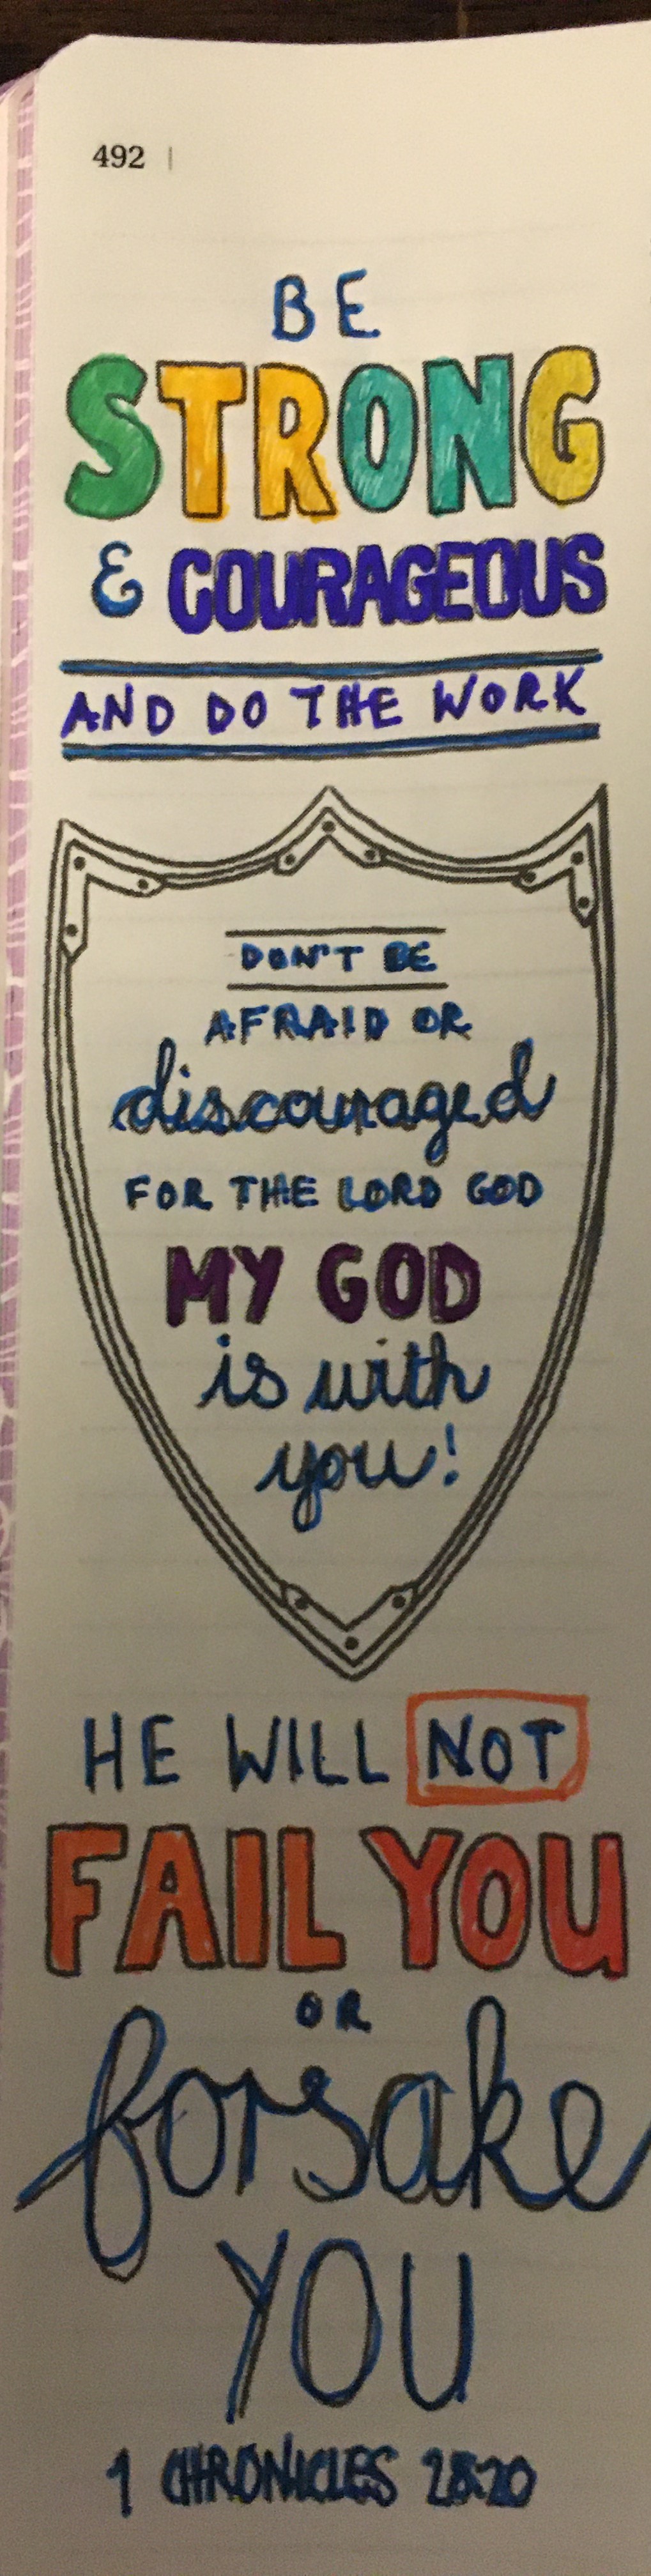 492 |
BE
STRONG
& COURAGEOUS
AND DO THE WORK
DON'T BE
AFRAID OR
discouraged
FOR THE LORD GOD
MY GOD
is with
you!
HE WILL NOT
FAIL YOU
OR
forsake
YOU
1 CHRONICLES 28:20